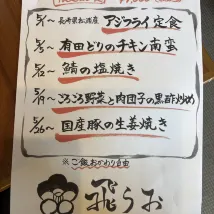 5/〜 長崎県松浦産 アジフライ定食
5/5〜 有田どりのチキン南蛮
5/12〜 鯖の塩焼き
5/19〜 ごろごろ野菜と肉団子の黒酢炒め
5/26〜 国産豚の生姜焼き
※ご飯おかわり自由
飛うお